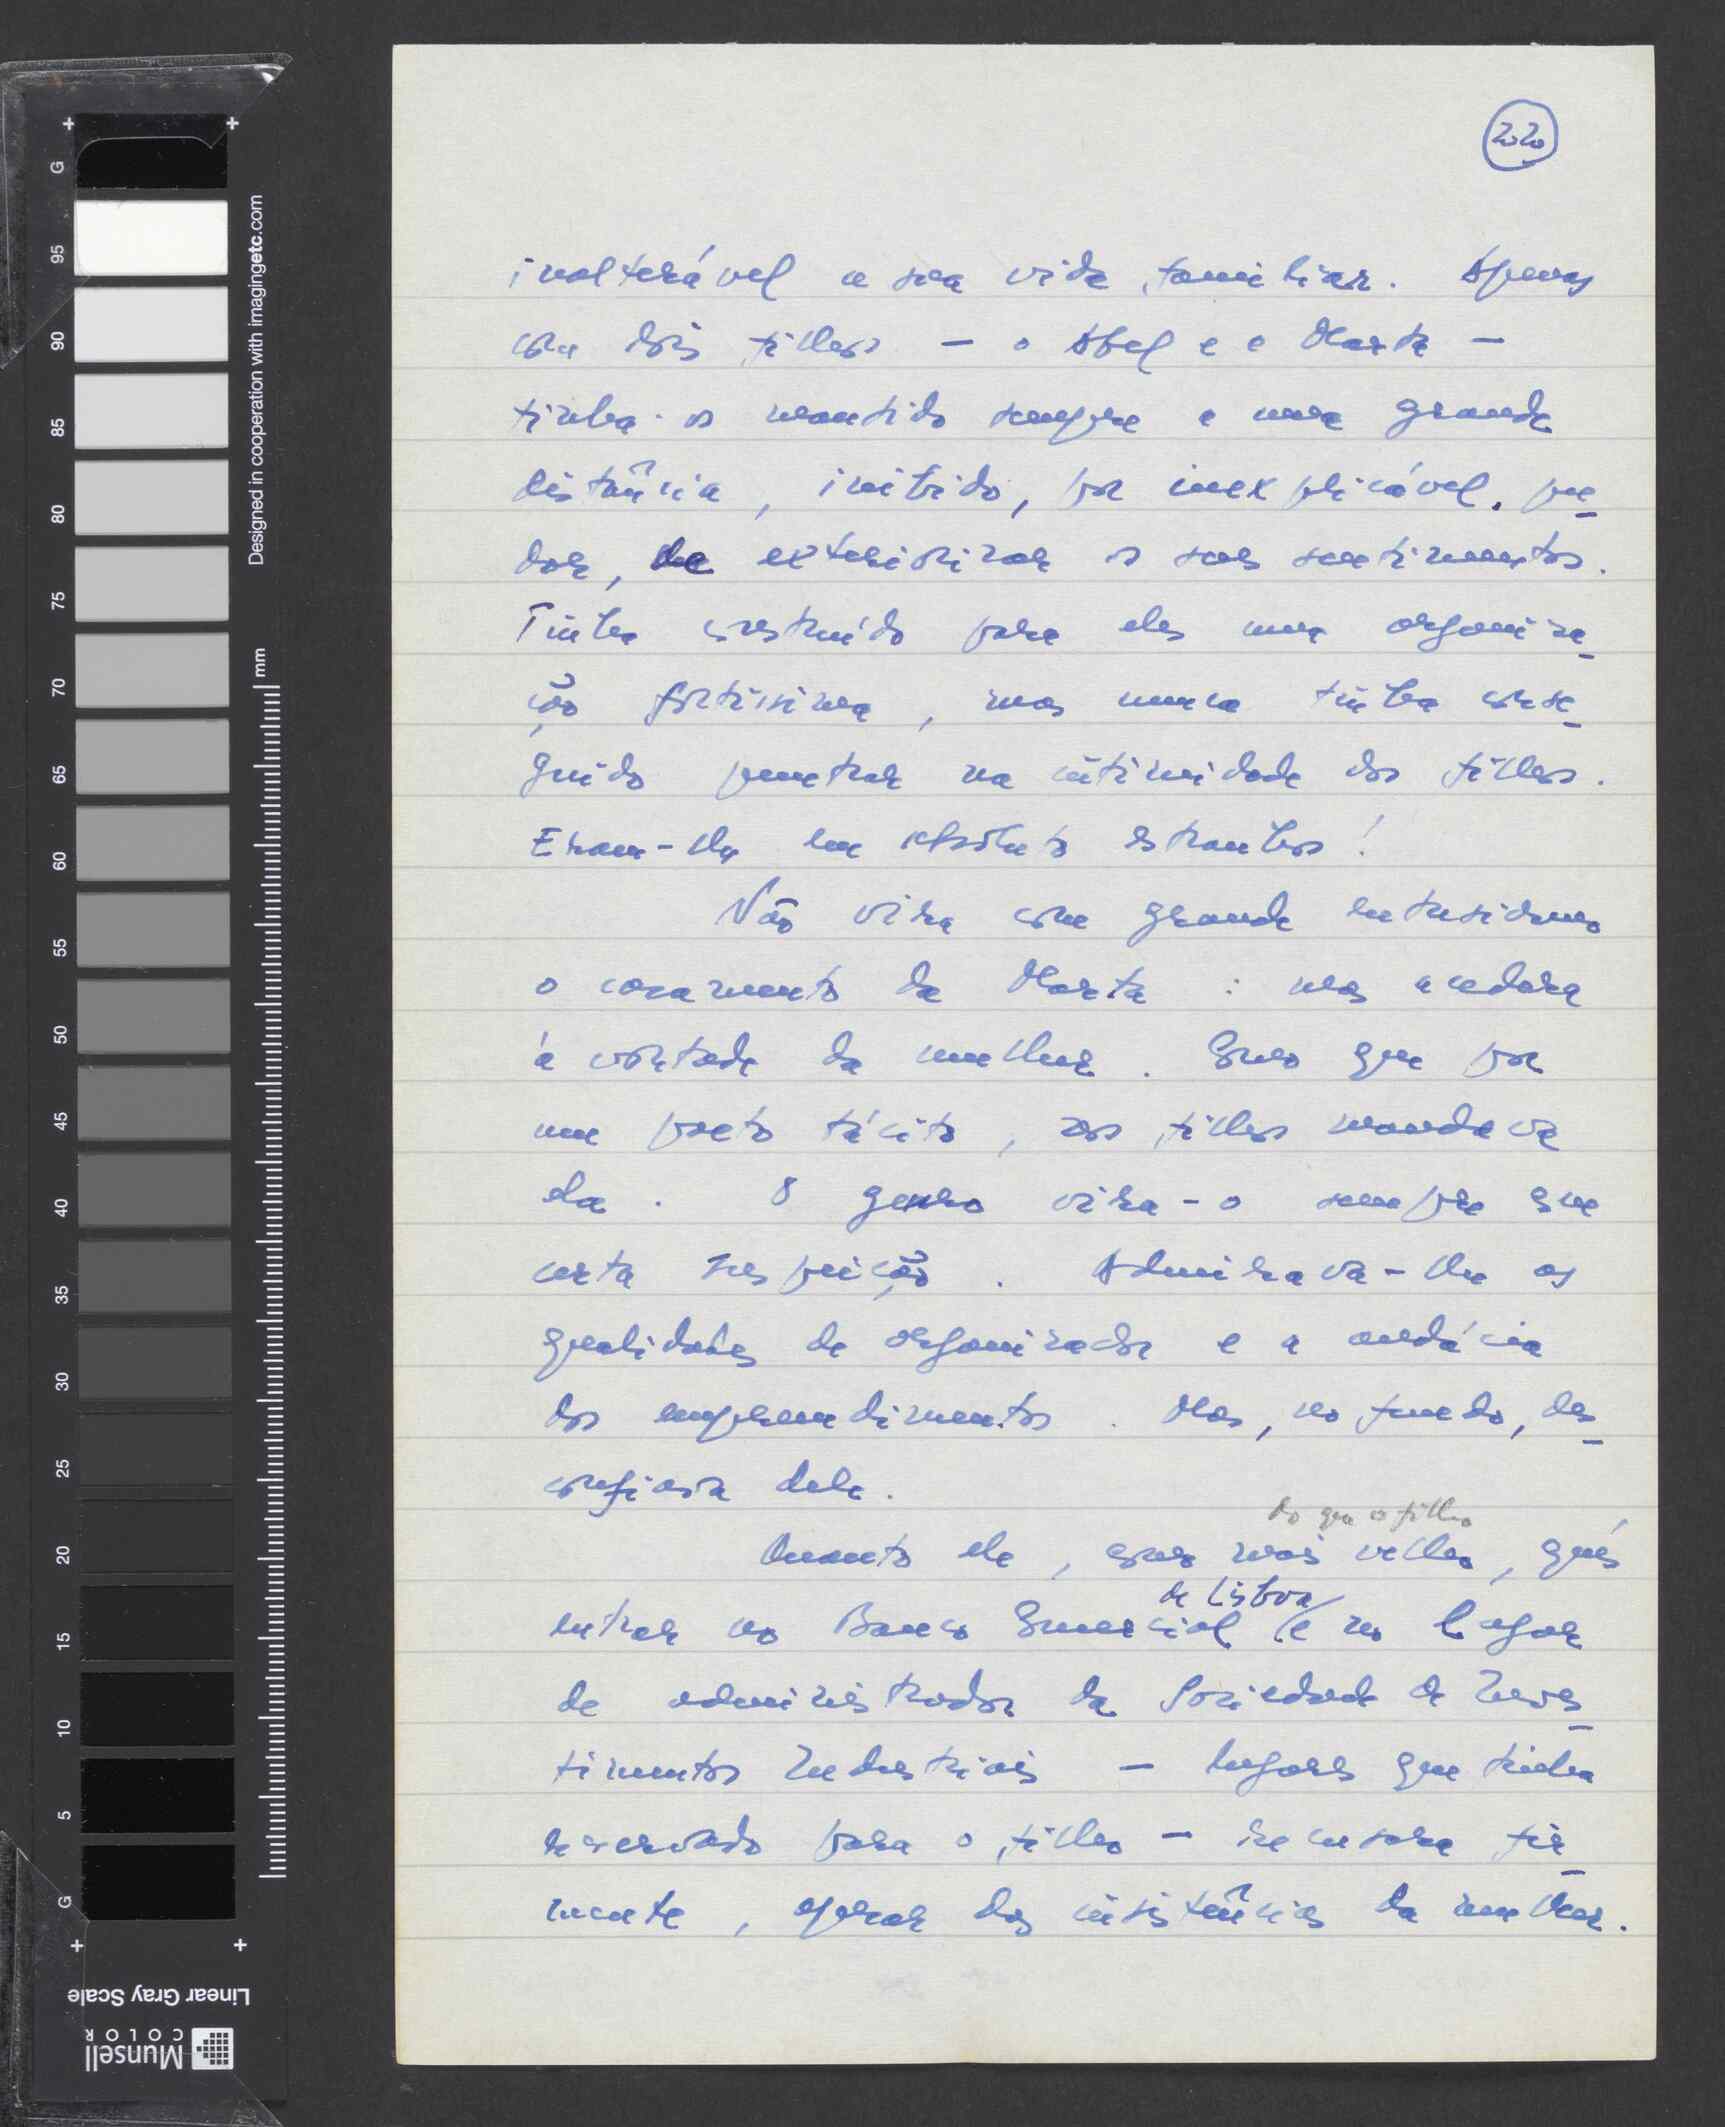 2020
inalterável a sua vida familiar. Apenas
com dois filhos — o Abel e a Marta —
tinha-os mantido sempre a uma grande
distância, inibido, por inexplicável, pu-
dor, de exteriorizar os seus sentimentos.
Tinha construído para eles uma organiza-
ção fortíssima, mas nunca tinha conse-
guido penetrar na intimidade dos filhos.
Eram-lhe em absoluto estranhos!
Não vira com grande entusiasmo
o casamento da Marta : mas acedera
à vontade da mulher. Como que por
um pacto tácito, nos filhos mandava
ela. O genro vira-o sempre com
certa suspeição. Admirava-lhe as
qualidades de organizador e a audácia
dos empreendimentos. Mas, no fundo, des-
confiava dele.
do que o filho
Quanto ele, como mais velho, quis
de Lisboa
entrar no Banco Comercial (e no lugar
de administrador da Sociedade de Inves-
timentos Industriais — lugares que tinha
reservado para o filho — recusara fir-
mente, apesar das insistências da mulher.
G 95 90 85 80 75 70 65 60 55 50 45 40 35 30 25 20 15 10 5 G
Designed in cooperation with imagingetc.com
mm
Linear Gray Scale
Munsell
COLOR